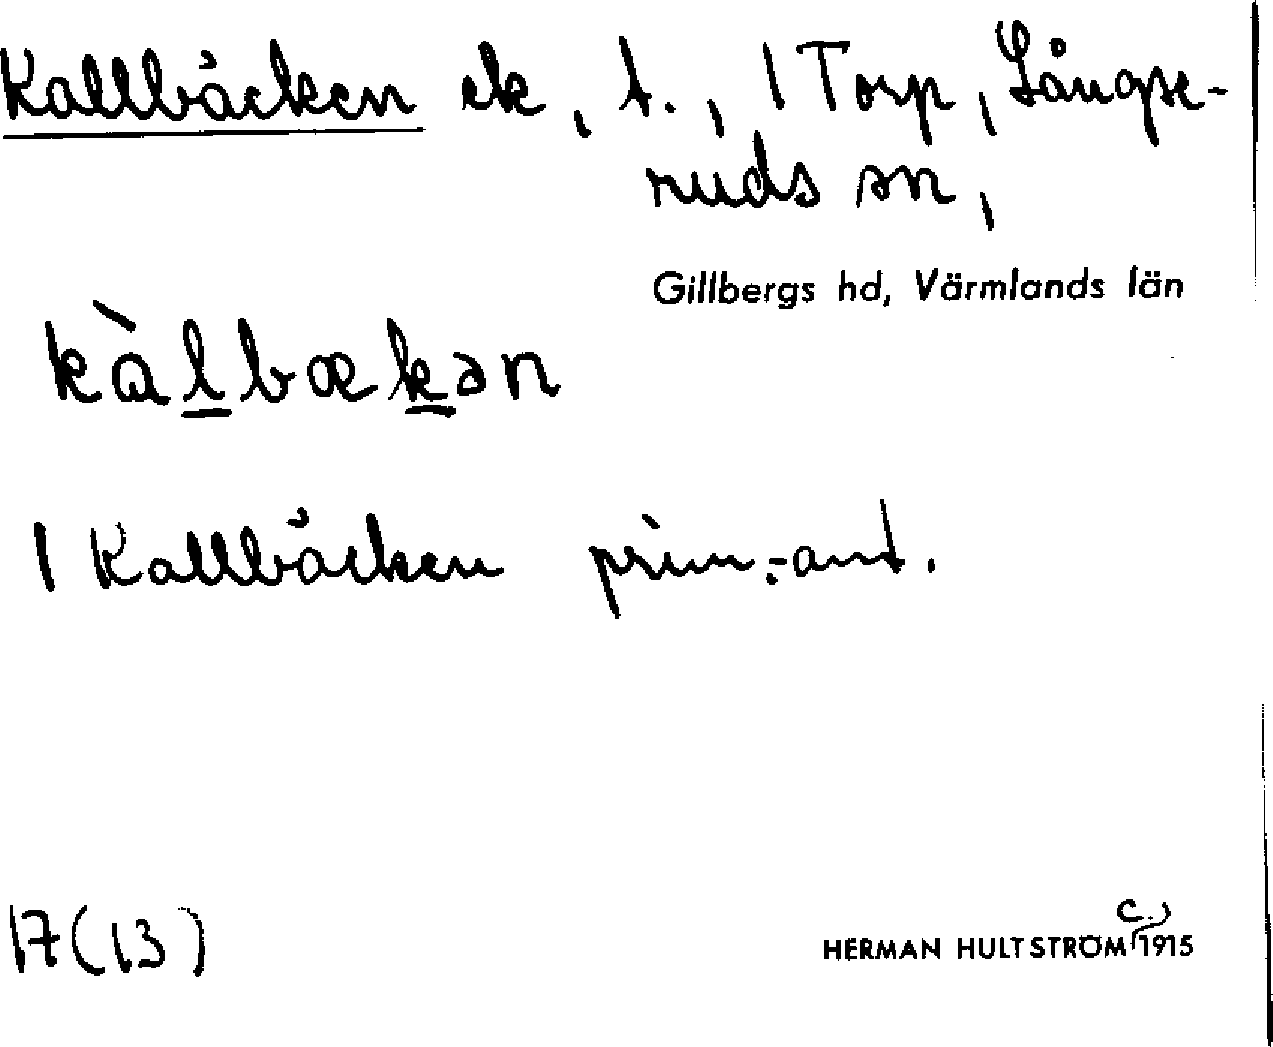 Kallbäcken ek, t., 1 Torp, Långse-
ruds sn,
Gillbergs hd, Värmlands län
kàlbækən
1 Kallbäcken prim.-ant.
17(13)
HERMAN HULTSTRÖM c.) 1915